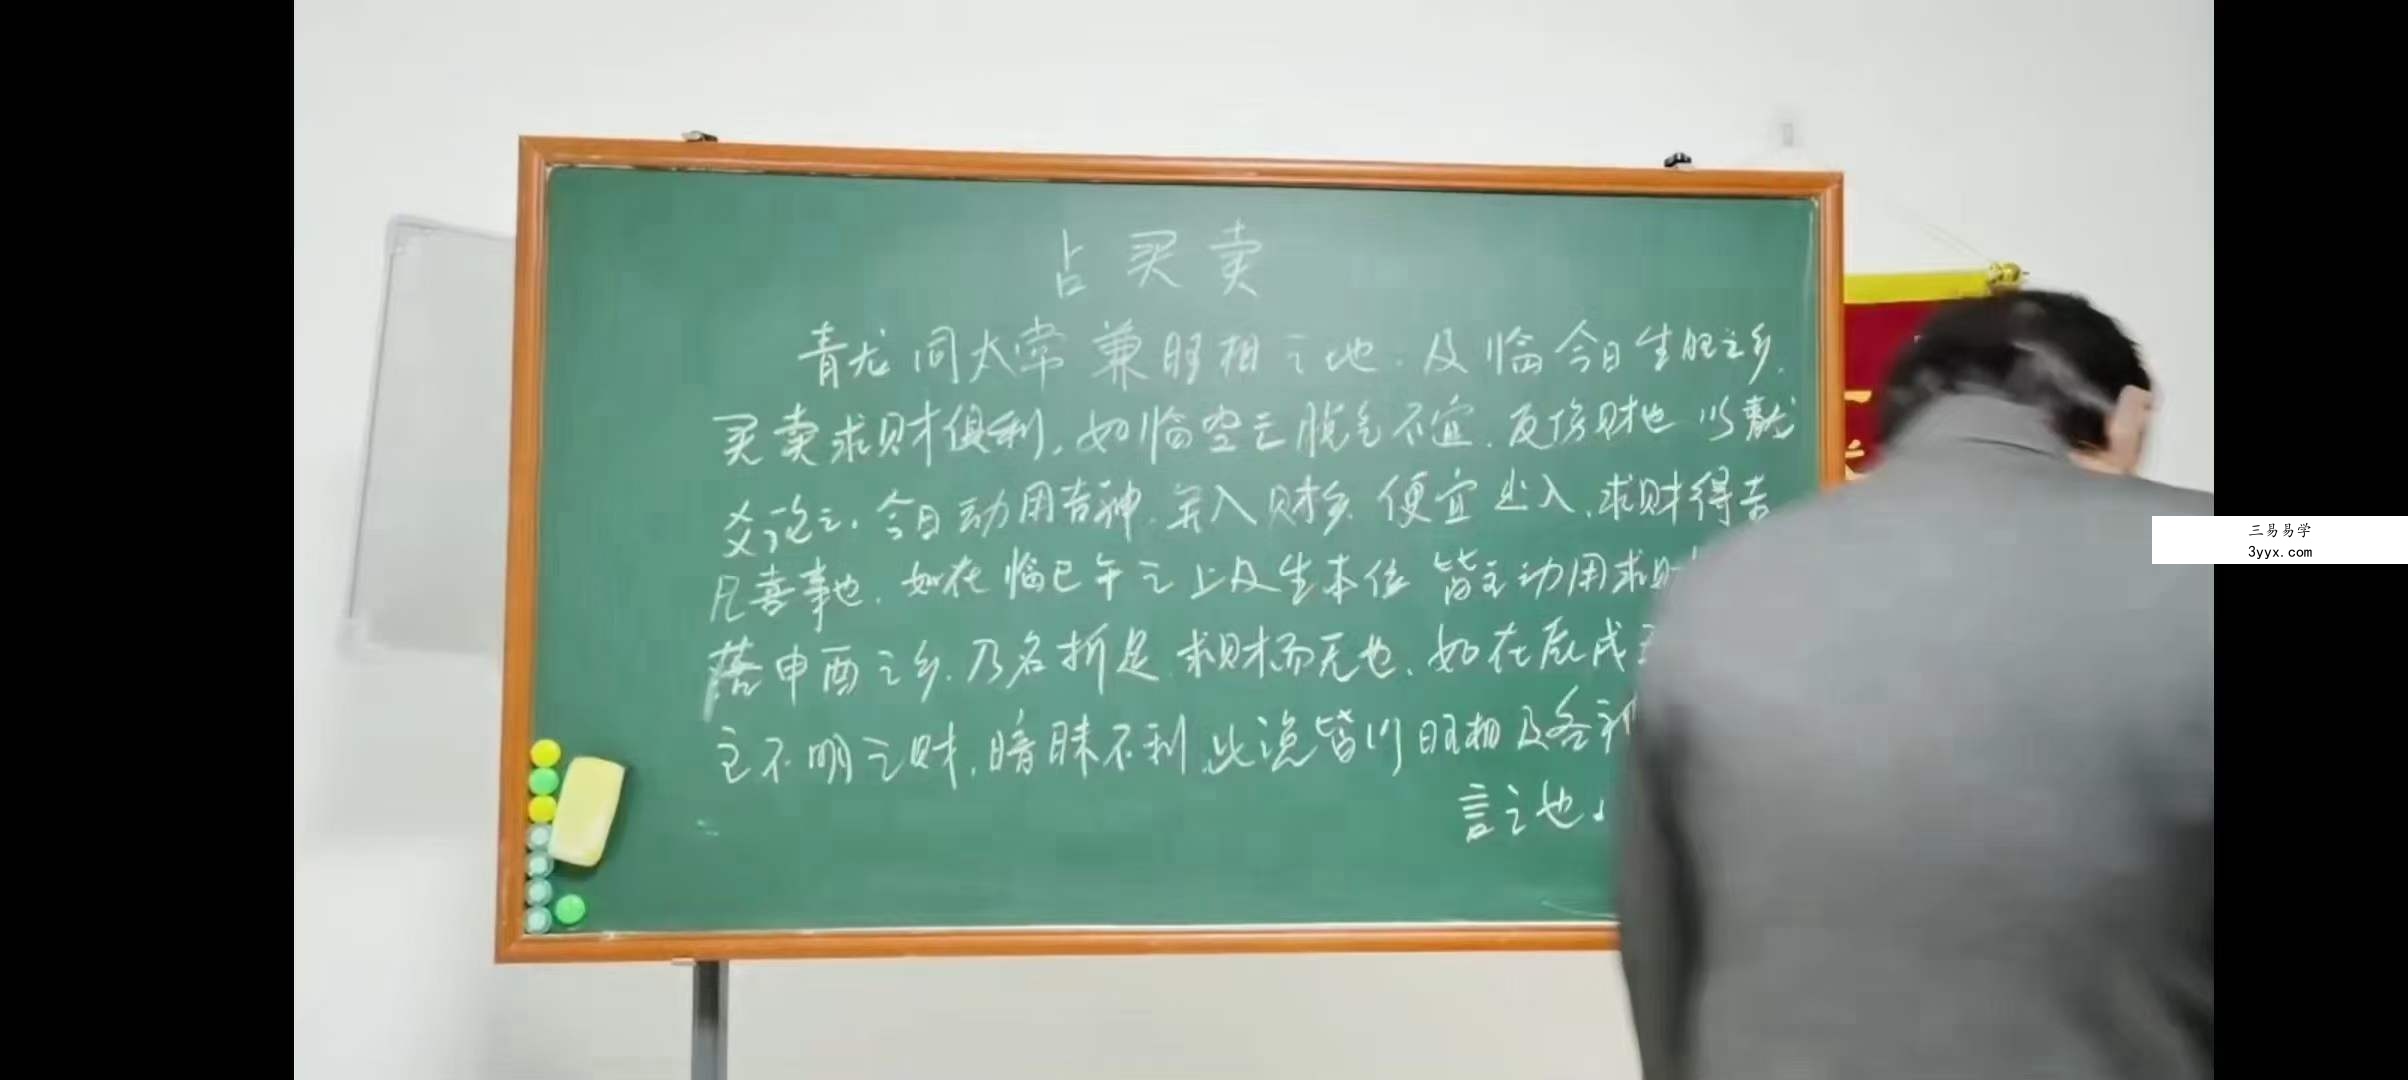 占买卖
青龙同太常兼旺相之地.及临今日生旺之乡.
买卖求财俱利,如临空亡脱气不宜.反伤财也 以青龙
爻论之.今日动用吉神.并入财乡 便宜出入.求财得吉
凡喜事也.如在临巳午之上及生本位 皆主动用求财
落申酉之乡.乃名折足.求财而无也.如在辰戌
主不明之财,暗昧不利.此说皆以旺相及各
言之也.
三易易学
3yyx.com